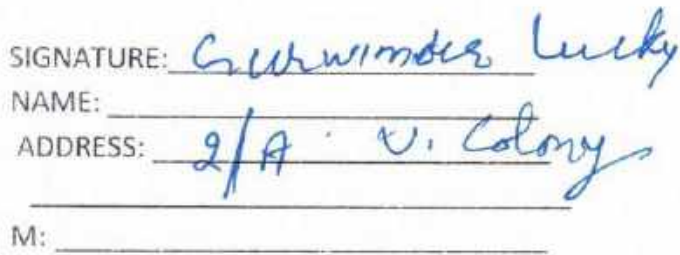 SIGNATURE: Gurwinder Lucky
NAME:
ADDRESS: 2/A V. Colony
M: